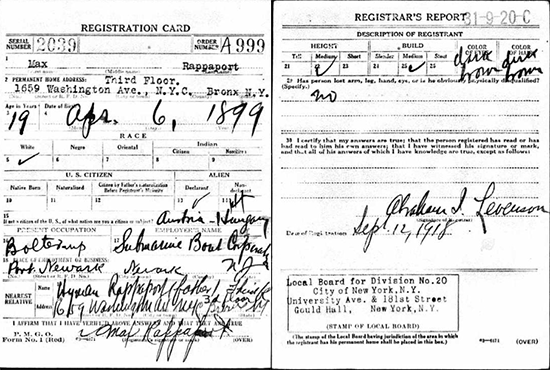 REGISTRATION CARD
SERIAL NUMBER 2039 ORDER NUMBER A999
1 Max Rappaport
2 PERMANENT HOME ADDRESS: Third Floor.
1659 Washington Ave., N.Y.C. Bronx N.Y.
Age in Years Date of Birth
19 Apr. 6, 1899
RACE
White Negro Oriental Indian
Citizen Noncitizen
5 ✓ 6 7 8 9
U. S. CITIZEN ALIEN
Native Born Naturalized Citizen by Father's Naturalization Before Registrant's Majority Declarant Non-declarant
10 11 12 13 14
15 If not a citizen of the U. S., of what nation are you a citizen or subject? Austria-Hungary
PRESENT OCCUPATION EMPLOYER'S NAME
16 17 Submarine Boat
18 PLACE OF EMPLOYMENT OR BUSINESS:
Port Newark Newark N J
NEAREST RELATIVE
Name Hyman Rappaport (father)
Address 1659 Washington 3d floor
I AFFIRM THAT I HAVE VERIFIED ABOVE ANSWERS AND THAT THEY ARE TRUE
P. M. G. O.
Form No. 1 (Red) Max Rappaport (OVER)
REGISTRAR'S REPORT 31-9-20-C
DESCRIPTION OF REGISTRANT
HEIGHT BUILD COLOR OF EYES COLOR OF HAIR
Tall Medium Short Slender Medium Stout
21 22 ✓ 23 24 25 ✓ 26 27 dark brown 28 dark brown
29 Has person lost arm, leg, hand, eye, or is he obviously physically disqualified?
(Specify.)
no
30 I certify that my answers are true; that the person registered has read or has had read to him his own answers; that I have witnessed his signature or mark, and that all of his answers of which I have knowledge are true, except as follows:
Abraham I. Levenson
Date of Registration Sep. 12, 1918
Local Board for Division No. 20
City of New York, N.Y.
University Ave. & 181st Street
Gould Hall, New York, N.Y.
(STAMP OF LOCAL BOARD)
(The stamp of the Local Board having jurisdiction of the area in which the registrant has his permanent home shall be placed in this box.)
(OVER)